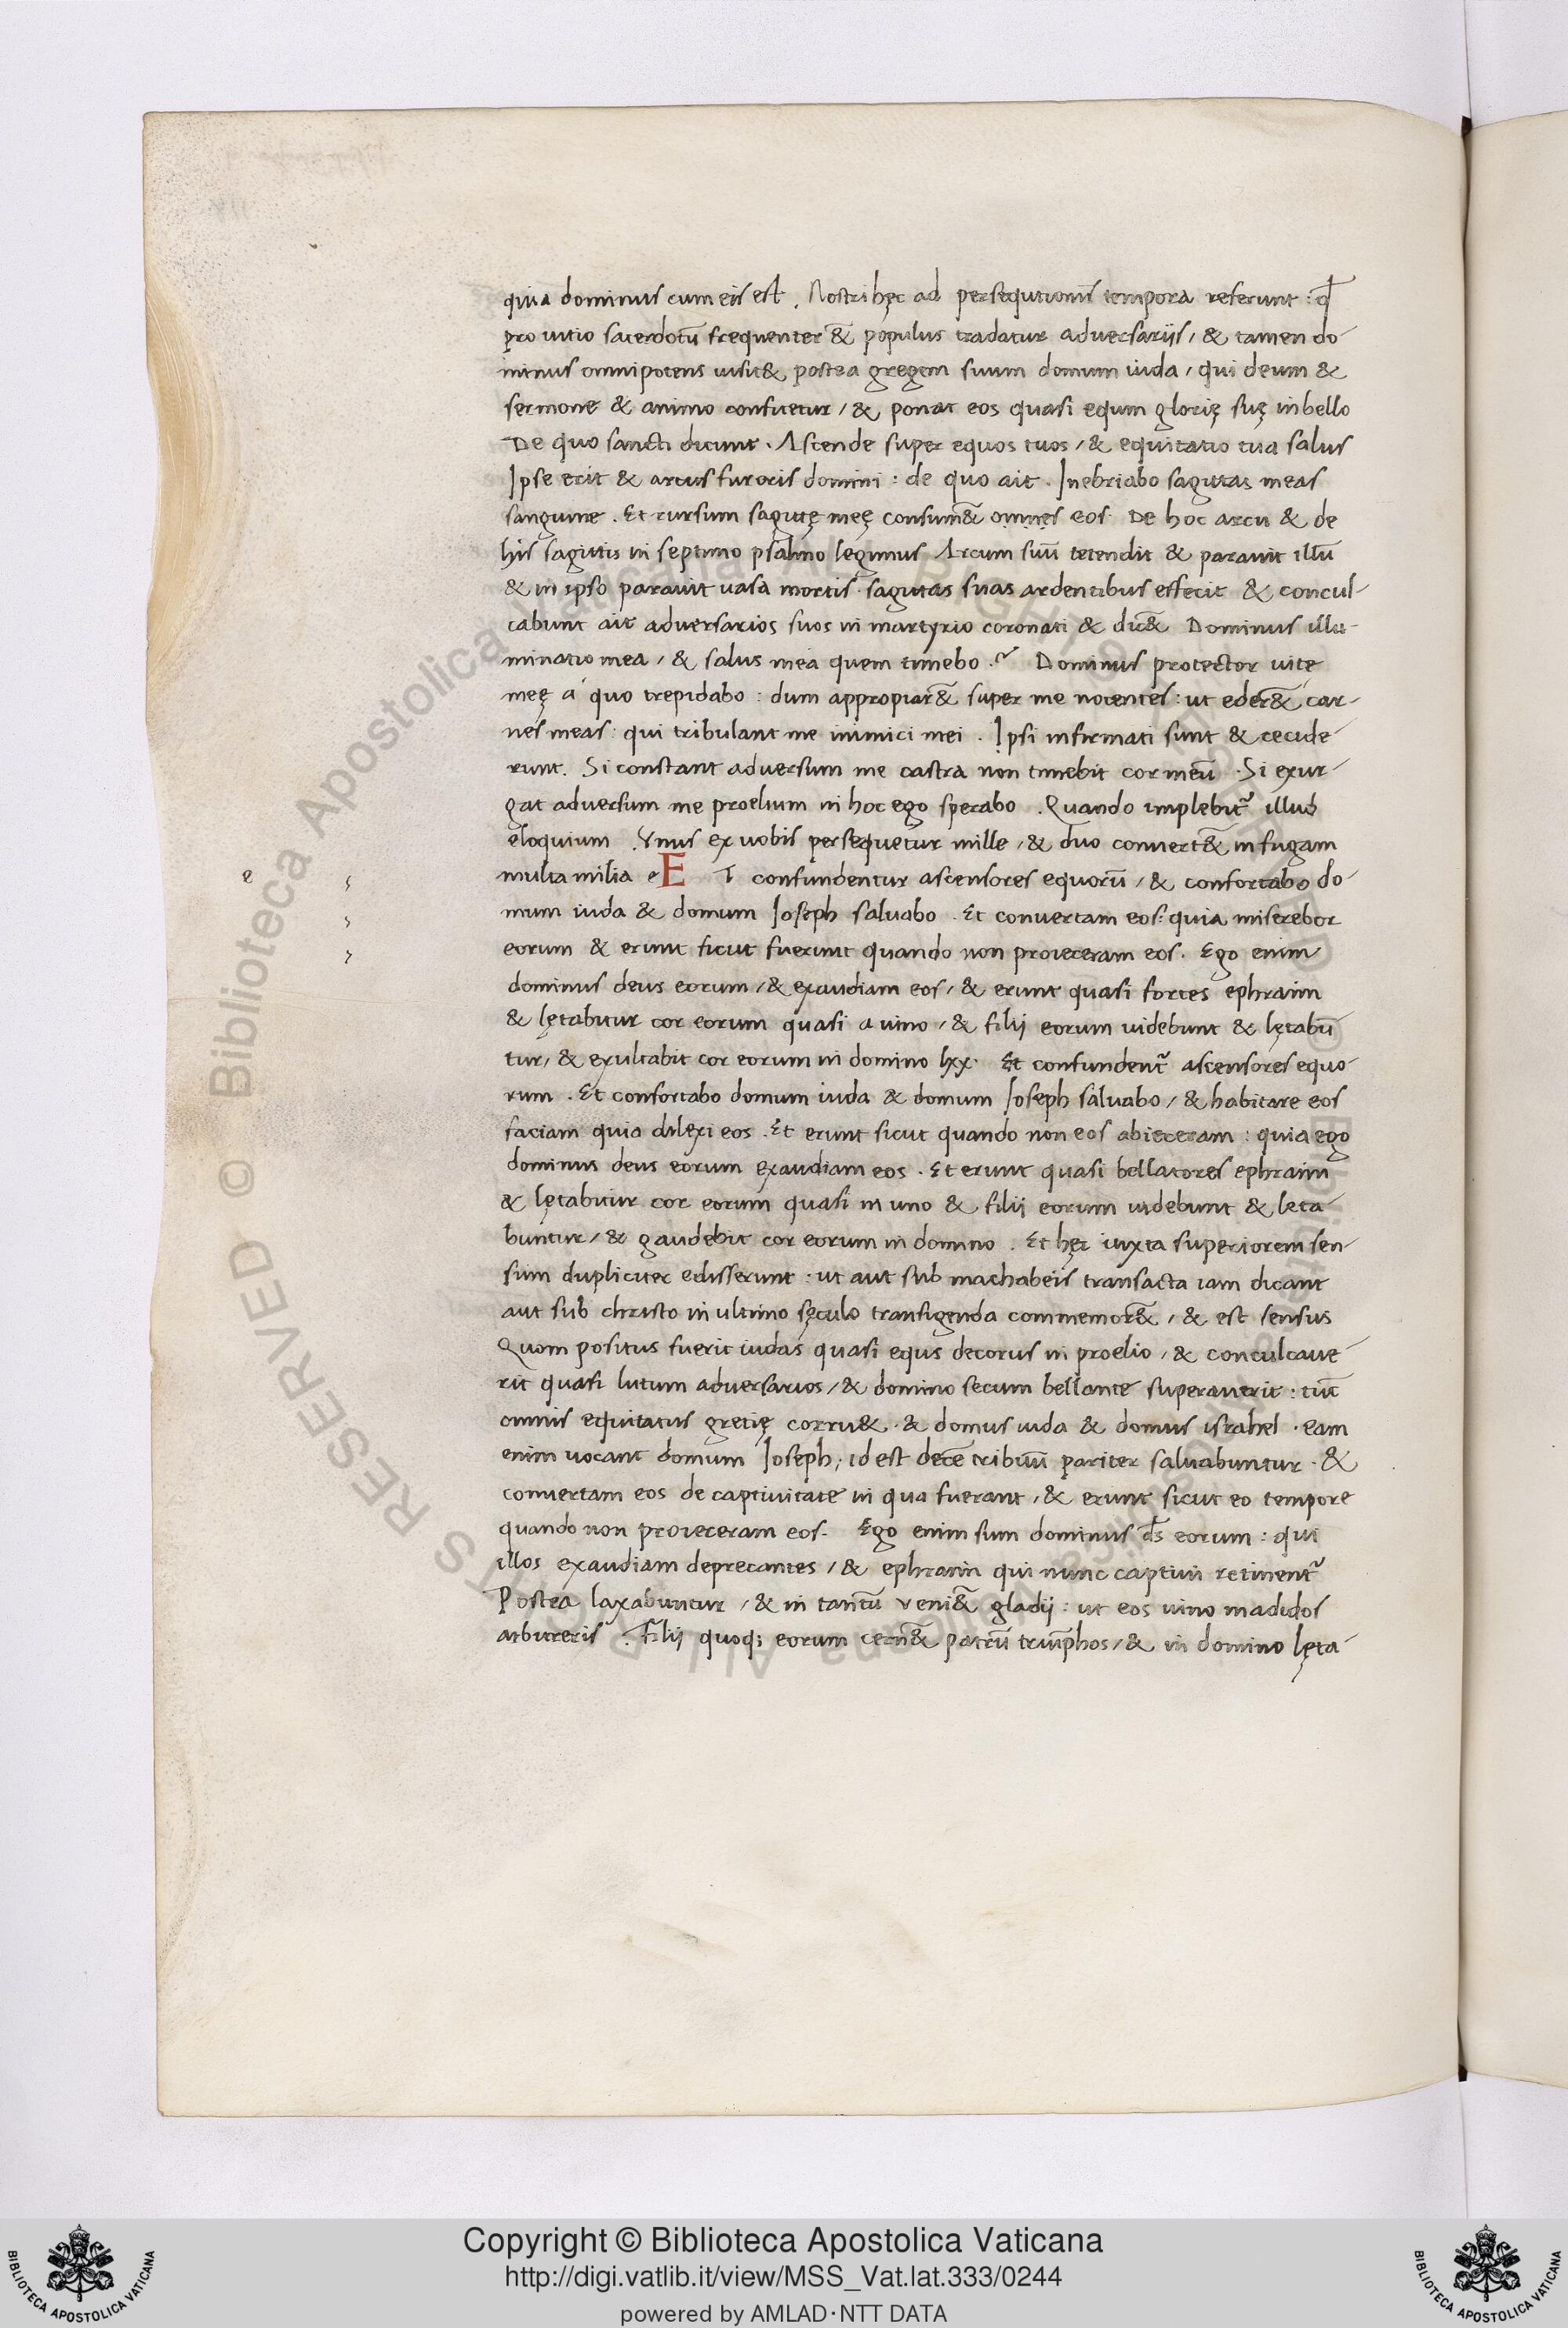 quia dominus cum eis est . Nostri hęc ad persequtionis tempora referunt : qđ
pro uitio sacerdotū frequenter & populus tradatur adversariis / & tamen do-
minus omnipotens uisit& postea gregem suum domum iuda / qui deum &
sermone & animo confitetur / & ponat eos quasi equm glorię suę in bello
De quo sancti dicunt . Ascende super equos tuos / & equitatio tua salus
Ipse erit & arcus furoris domini : de quo ait . Inebriabo sagittas meas
sanguine . Et rursum sagittę meę consum& omnes eos . De hoc arcu & de
his sagittis in septimo psalmo legimus Arcum suū tetendit & parauit illū
& in ipso parauit uasa mortis . sagittas suas ardentibus effecit & concul-
cabunt ait adversarios suos in martyrio coronati & dic& Dominus illu-
minatio mea / & salus mea quem timebo . Dominus protector uite
meę a quo trepidabo : dum appropiar& super me nocentes : ut eder& car-
nes meas : qui tribulant me inimici mei . Ipsi infirmati sunt & cecide
runt . Si constant adversum me castra non timebit cor meū . Si exur-
gat adversum me proelium in hoc ego sperabo . Quando implebit illud
eloquium . Vnus ex uobis persequetur mille / & duo convert& in fugam
multa milia e E T confundentur ascensores equorū / & confortabo do-
mum iuda & domum Ioseph salvabo . Et convertam eos : quia miserebor
eorum & erunt sicut fuerunt quando non proieceram eos . Ego enim
dominus deus eorum / & exaudiam eos / & erunt quasi fortes ephraim
& lętabitur cor eorum quasi a uino / & filij eorum uidebunt & lętabū
tur / & exultabit cor eorum in domino lxx . Et confundent ascensores equo-
rum . Et confortabo domum iuda & domum Ioseph salvabo / & habitare eos
faciam quia dilexi eos . Et erunt sicut quando non eos abieceram : quia ego
dominus deus eorum exaudiam eos . Et erunt quasi bellatores ephraim
& lętabitur cor eorum quasi in uino & filii eorum uidebunt & leta
buntur / & gaudebit cor eorum in domino . Et hęc iuxta superiorem sen-
sum dupliciter edisserunt : ut aut sub machabeis transacta iam dicant
aut sub christo in ultimo sęculo transigenda commemor& / & est sensus
Quom positus fuerit iudas quasi equs decorus in proelio / & conculcave-
rit quasi lutum adversarios / & domino secum bellante superaverit : tūc
omnis equitatus gretię corru& . & domus iuda & domus israhel . eam
enim uocant domum Ioseph ; id est decē tribuū pariter salvabuntur . &
convertam eos de captivitate in qua fuerant / & erunt sicut eo tempore
quando non proieceram eos . Ego enim sum dominus ds eorum : qui
illos exaudiam deprecantes / & ephraim qui nunc captivi retinent
Postea laxabuntur / & in tantū veni& gladij : ut eos uino madidos
arbitreris . Filij quoq; eorum cern& patrū triūphos / & in domino lęta-
e
Copyright © Biblioteca Apostolica Vaticana
http://digi.vatlib.it/view/MSS_Vat.lat.333/0244
powered by AMLAD·NTT DATA
BIBLIOTECA APOSTOLICA VATICANA
BIBLIOTECA APOSTOLICA VATICANA